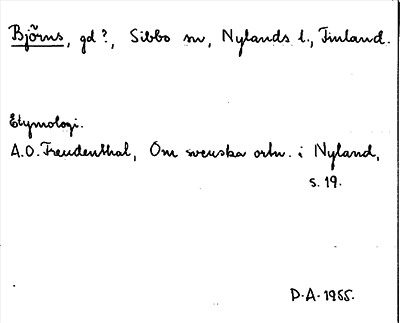 Björns, gd ?, Sibbo sn, Nylands l., Finland.
Etymologi.
A.O. Freudenthal, Om svenska ortn. i Nyland,
s. 19.
D-A-1955.